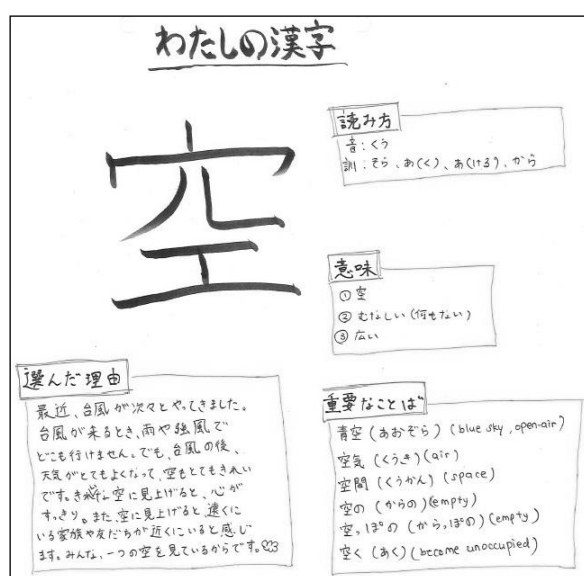 わたしの漢字
空
読み方
音：くう
訓：そら、あ(く)、あ(ける)、から
意味
① 空
② むなしい(何もない)
③ 広い
選んだ理由
最近、台風が次々とやってきました。
台風が来るとき、雨や強風で
どこも行けません。でも、台風の後、
天気がとてもよくなって、空もとてもきれい
です。空に見上げると、心が
すっきり。また、空に見上げると、遠くに
いる家族や友だちが近くにいると感じ
ます。みんな、一つの空を見ているからです。
重要なことば
青空 (あおぞら) (blue sky, open-air)
空気 (くうき) (air)
空間 (くうかん) (space)
空の (からの) (empty)
空っぽの (からっぽの) (empty)
空く (あく) (become unoccupied)